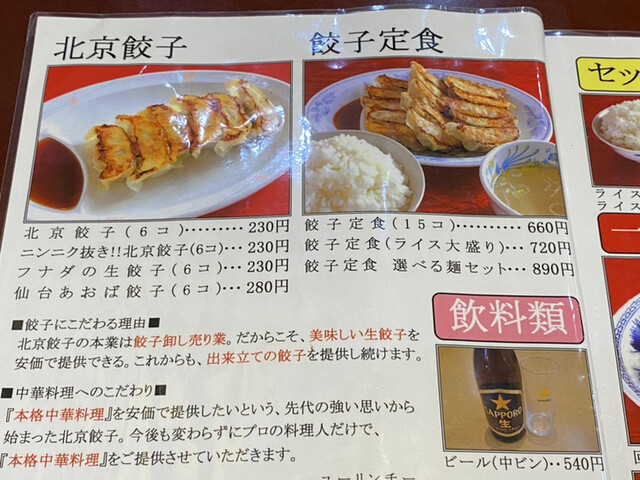 北京餃子
北京餃子(6コ)………230円
ニンニク抜き!!北京餃子(6コ)…230円
フナダの生餃子(6コ)…230円
仙台あおば餃子(6コ)…280円
餃子定食
餃子定食(15コ)………660円
餃子定食(ライス大盛り)…720円
餃子定食 選べる麺セット…890円
■餃子にこだわる理由■
北京餃子の本業は餃子卸し売り業。だからこそ、美味しい生餃子を
安価で提供できる。これからも、出来立ての餃子を提供し続けます。
■中華料理へのこだわり■
『本格中華料理』を安価で提供したいという、先代の強い思いから
始まった北京餃子。今後も変わらずにプロの料理人だけで、
『本格中華料理』をご提供させていただきます。
ユーリンチー
飲料類
SAPPORO
生
ビール(中ビン)‥540円
セッ
ライス
ライス